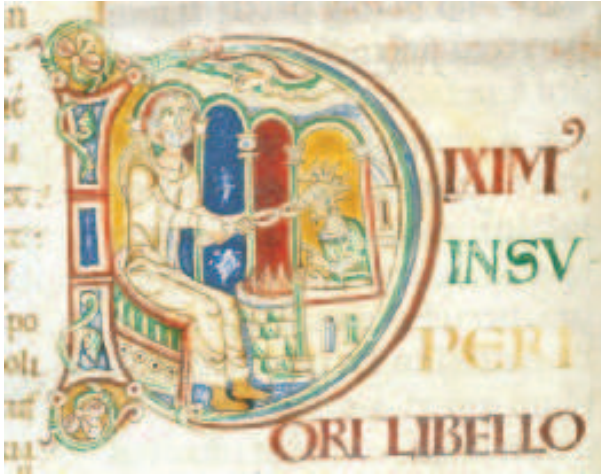 DIXIM'
IN SV
PERI
ORI LIBELLO